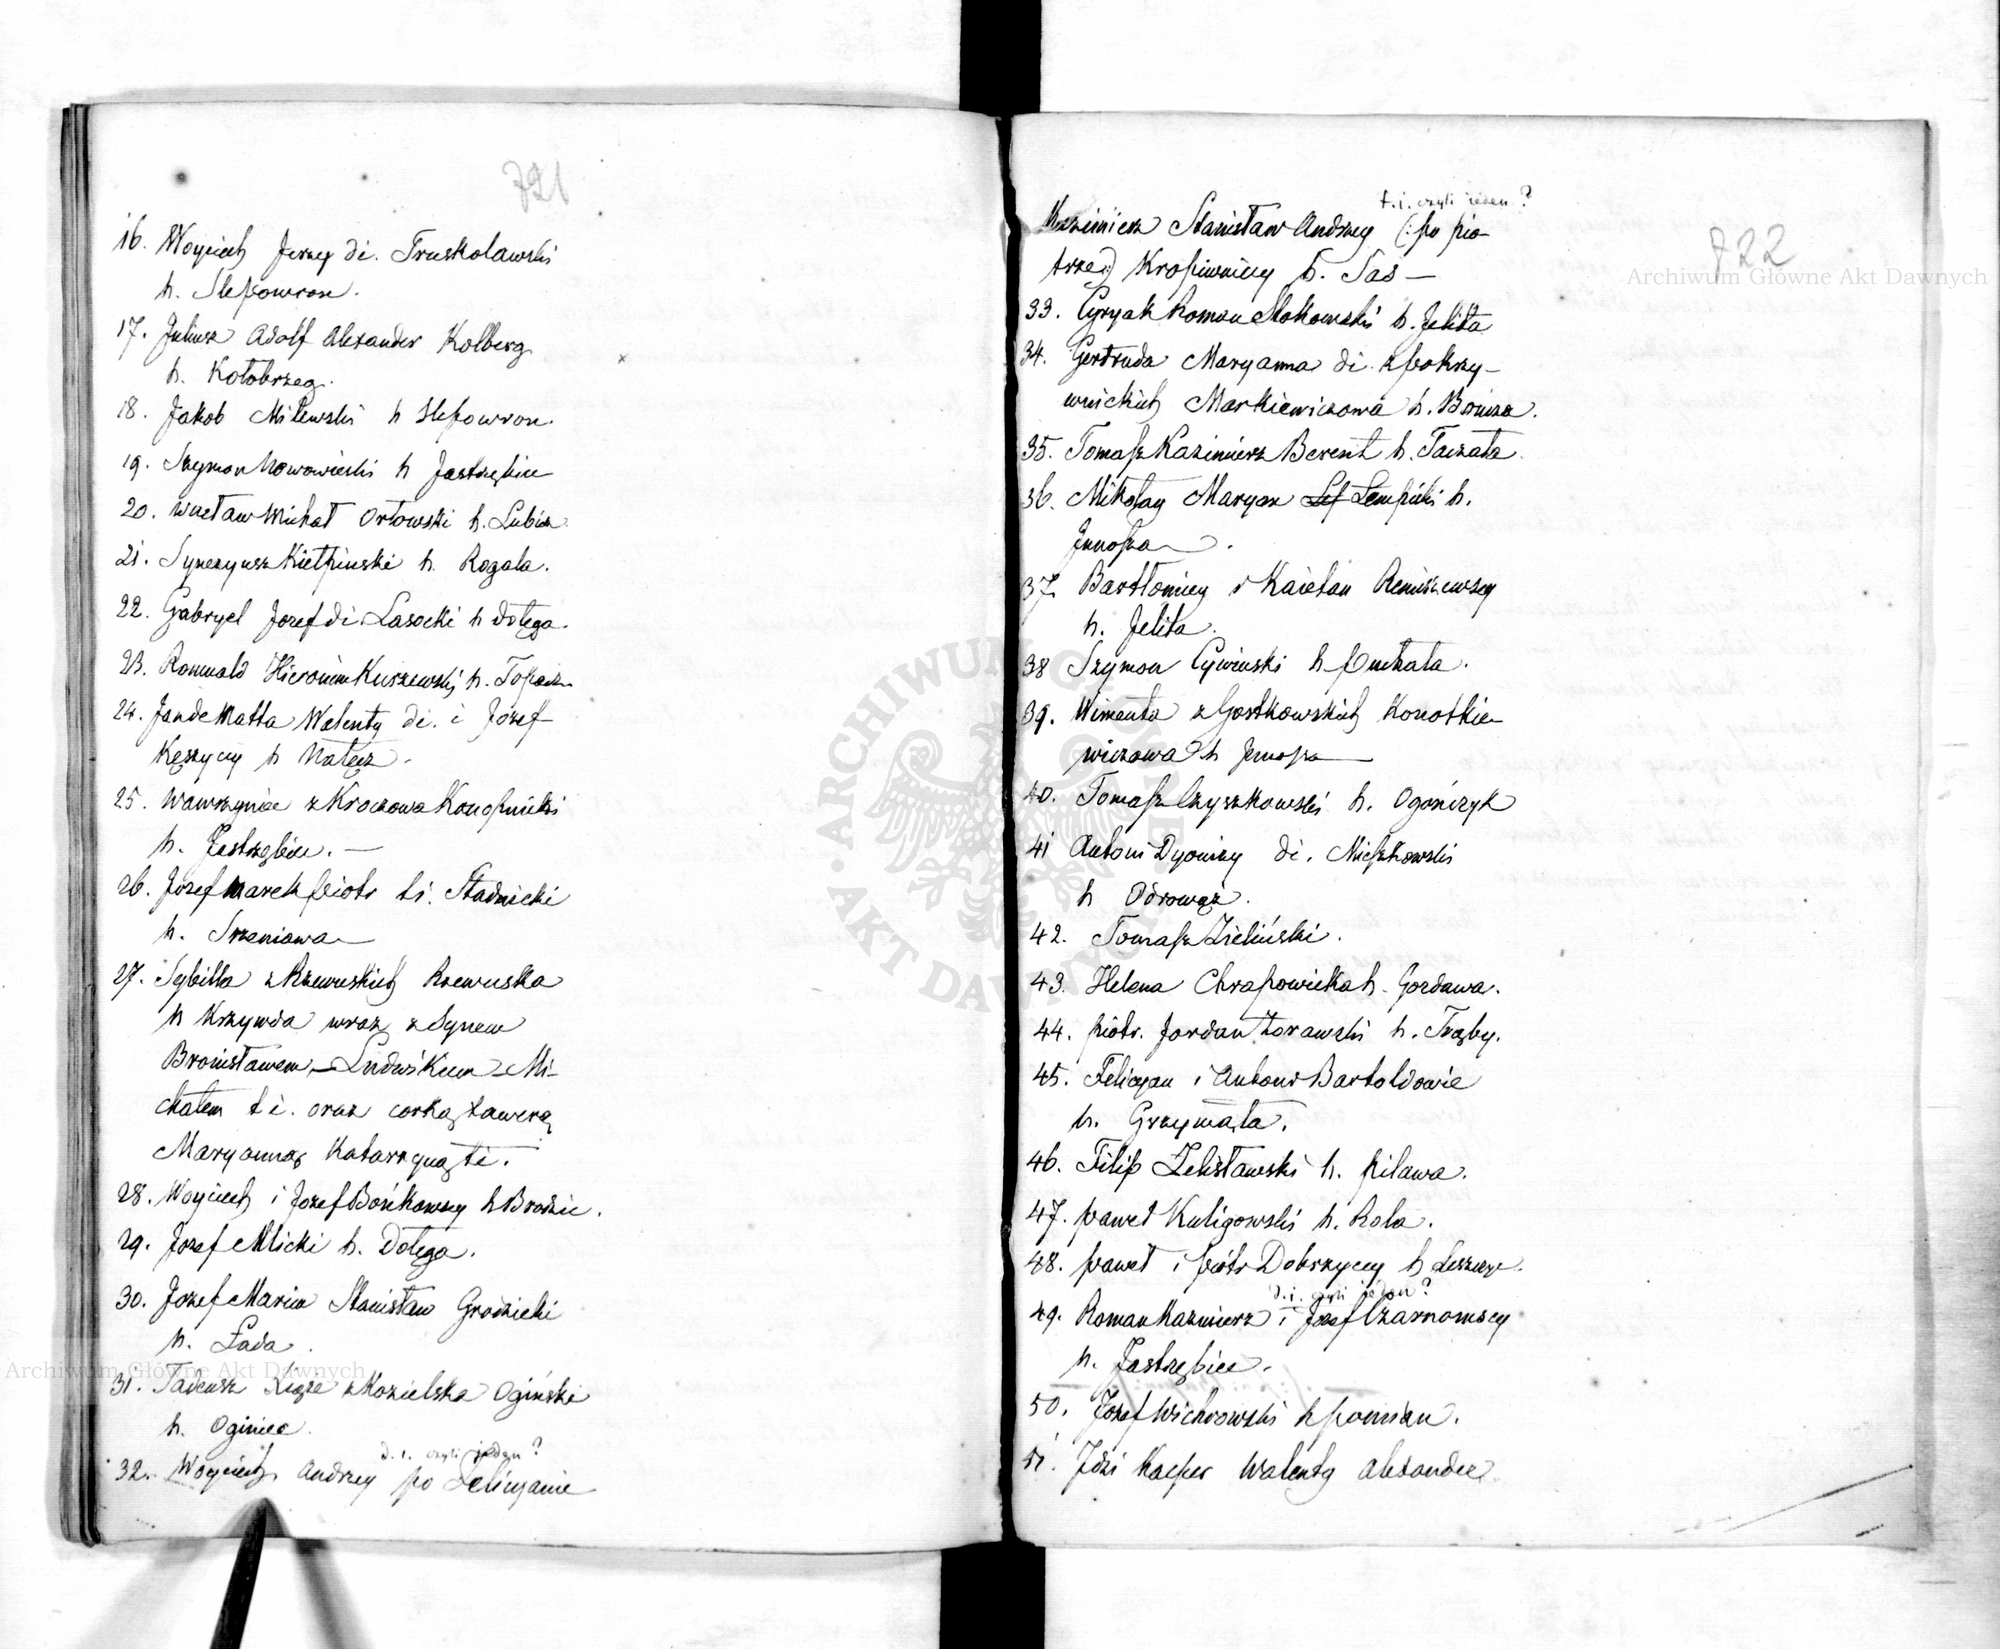 721
16. Woyciech Jerzy di. Truskolawski
h. Slepowron.
17. Juliusz Adolf Alexander Kolberg
h. Kołobrzeg.
18. Jakob Milewski h Slepowron.
19. Szymon Nowowieski h Jastrzębiec
20. Wacław Michał Orłowski h. Lubicz
21. Synezyusz Kiełpinski h. Rogala.
22. Gabryel Jozef di. Lasocki h Dołęga.
23. Romuald Hieronim Kuszewski h. Topacz
24. Jan de Matta Walenty di. i Józef
Kęszyccy h Nałęcz.
25. Wawrzyniec z Kroczowa Konopnicki
h. Jastrzębiec. —
26. Józef Marek Piotr ti. Stadnicki
h. Srzeniawa
27. Sybilla z Rzewuskich Rzewuska
h Krzywda wraz z Synem
Bronisławem - Ludwikiem - Mi-
chałem t i. oraz corką Xawerą
Maryanną Katarzyną ti.
28. Woyciech i Jozef Bońkowscy h Brodzic.
29. Jozef Mlicki h. Dołęga.
30. Jozef Maria Stanisław Grodzicki
h. Łada.
31. Tadeusz Xiąże z Kozielska Ogiński
h. Oginiec.
d. i. czyli jeden?
32. Woyciech Andrzey po Felicyanie
t. i. czyli jeden?
Kazimierz Stanisław Andrzey (: po Pio-
trze:) Kropiwniccy h. Sas —
822
33. Cyryak Roman Mokowski h. Jelita
34. Gertruda Maryanna di. z Pokrzy-
wnickich Markiewiczowa h. Boncza.
35. Tomasz Kazimierz Berent h. Taczała.
36. Mikołay Maryan Lef Lempicki h.
Junosza.
37. Bartłomiey i Kaietan Remiszewscy
h. Jelita.
38 Szymon Cywinski h Puchała.
39. Wimenta z Gostkowskich Konotkie-
wiczowa h Junosza
40. Tomasz Czyszkowski h. Ogończyk
41 Antoni Dyonizy di. Mieszkowski
h Odrowąż.
42. Tomasz Zieliński.
43. Helena Chrapowicka h. Gozdawa.
44. Piotr. Jordan Żorawski h. Trąby.
45. Felicyan i Antoni Bartoldowie
h. Grzymała.
46. Filip Zelisławski h. Pilawa.
47. Paweł Kuligowski h. Rola.
48. Paweł i Piotr Dobrzyccy h Leszczyc.
d. i. czyli jeden?
49. Roman Kazimierz i Józef Czarnomscy
h. Jastrzębiec.
50. Jozef Wichrowski h Pomian.
51. Idzi Kacper Walenty Alexander
Archiwum Główne Akt Dawnych
Archiwum Główne Akt Dawnych
ARCHIWUM GŁÓWNE AKT DAWNYCH